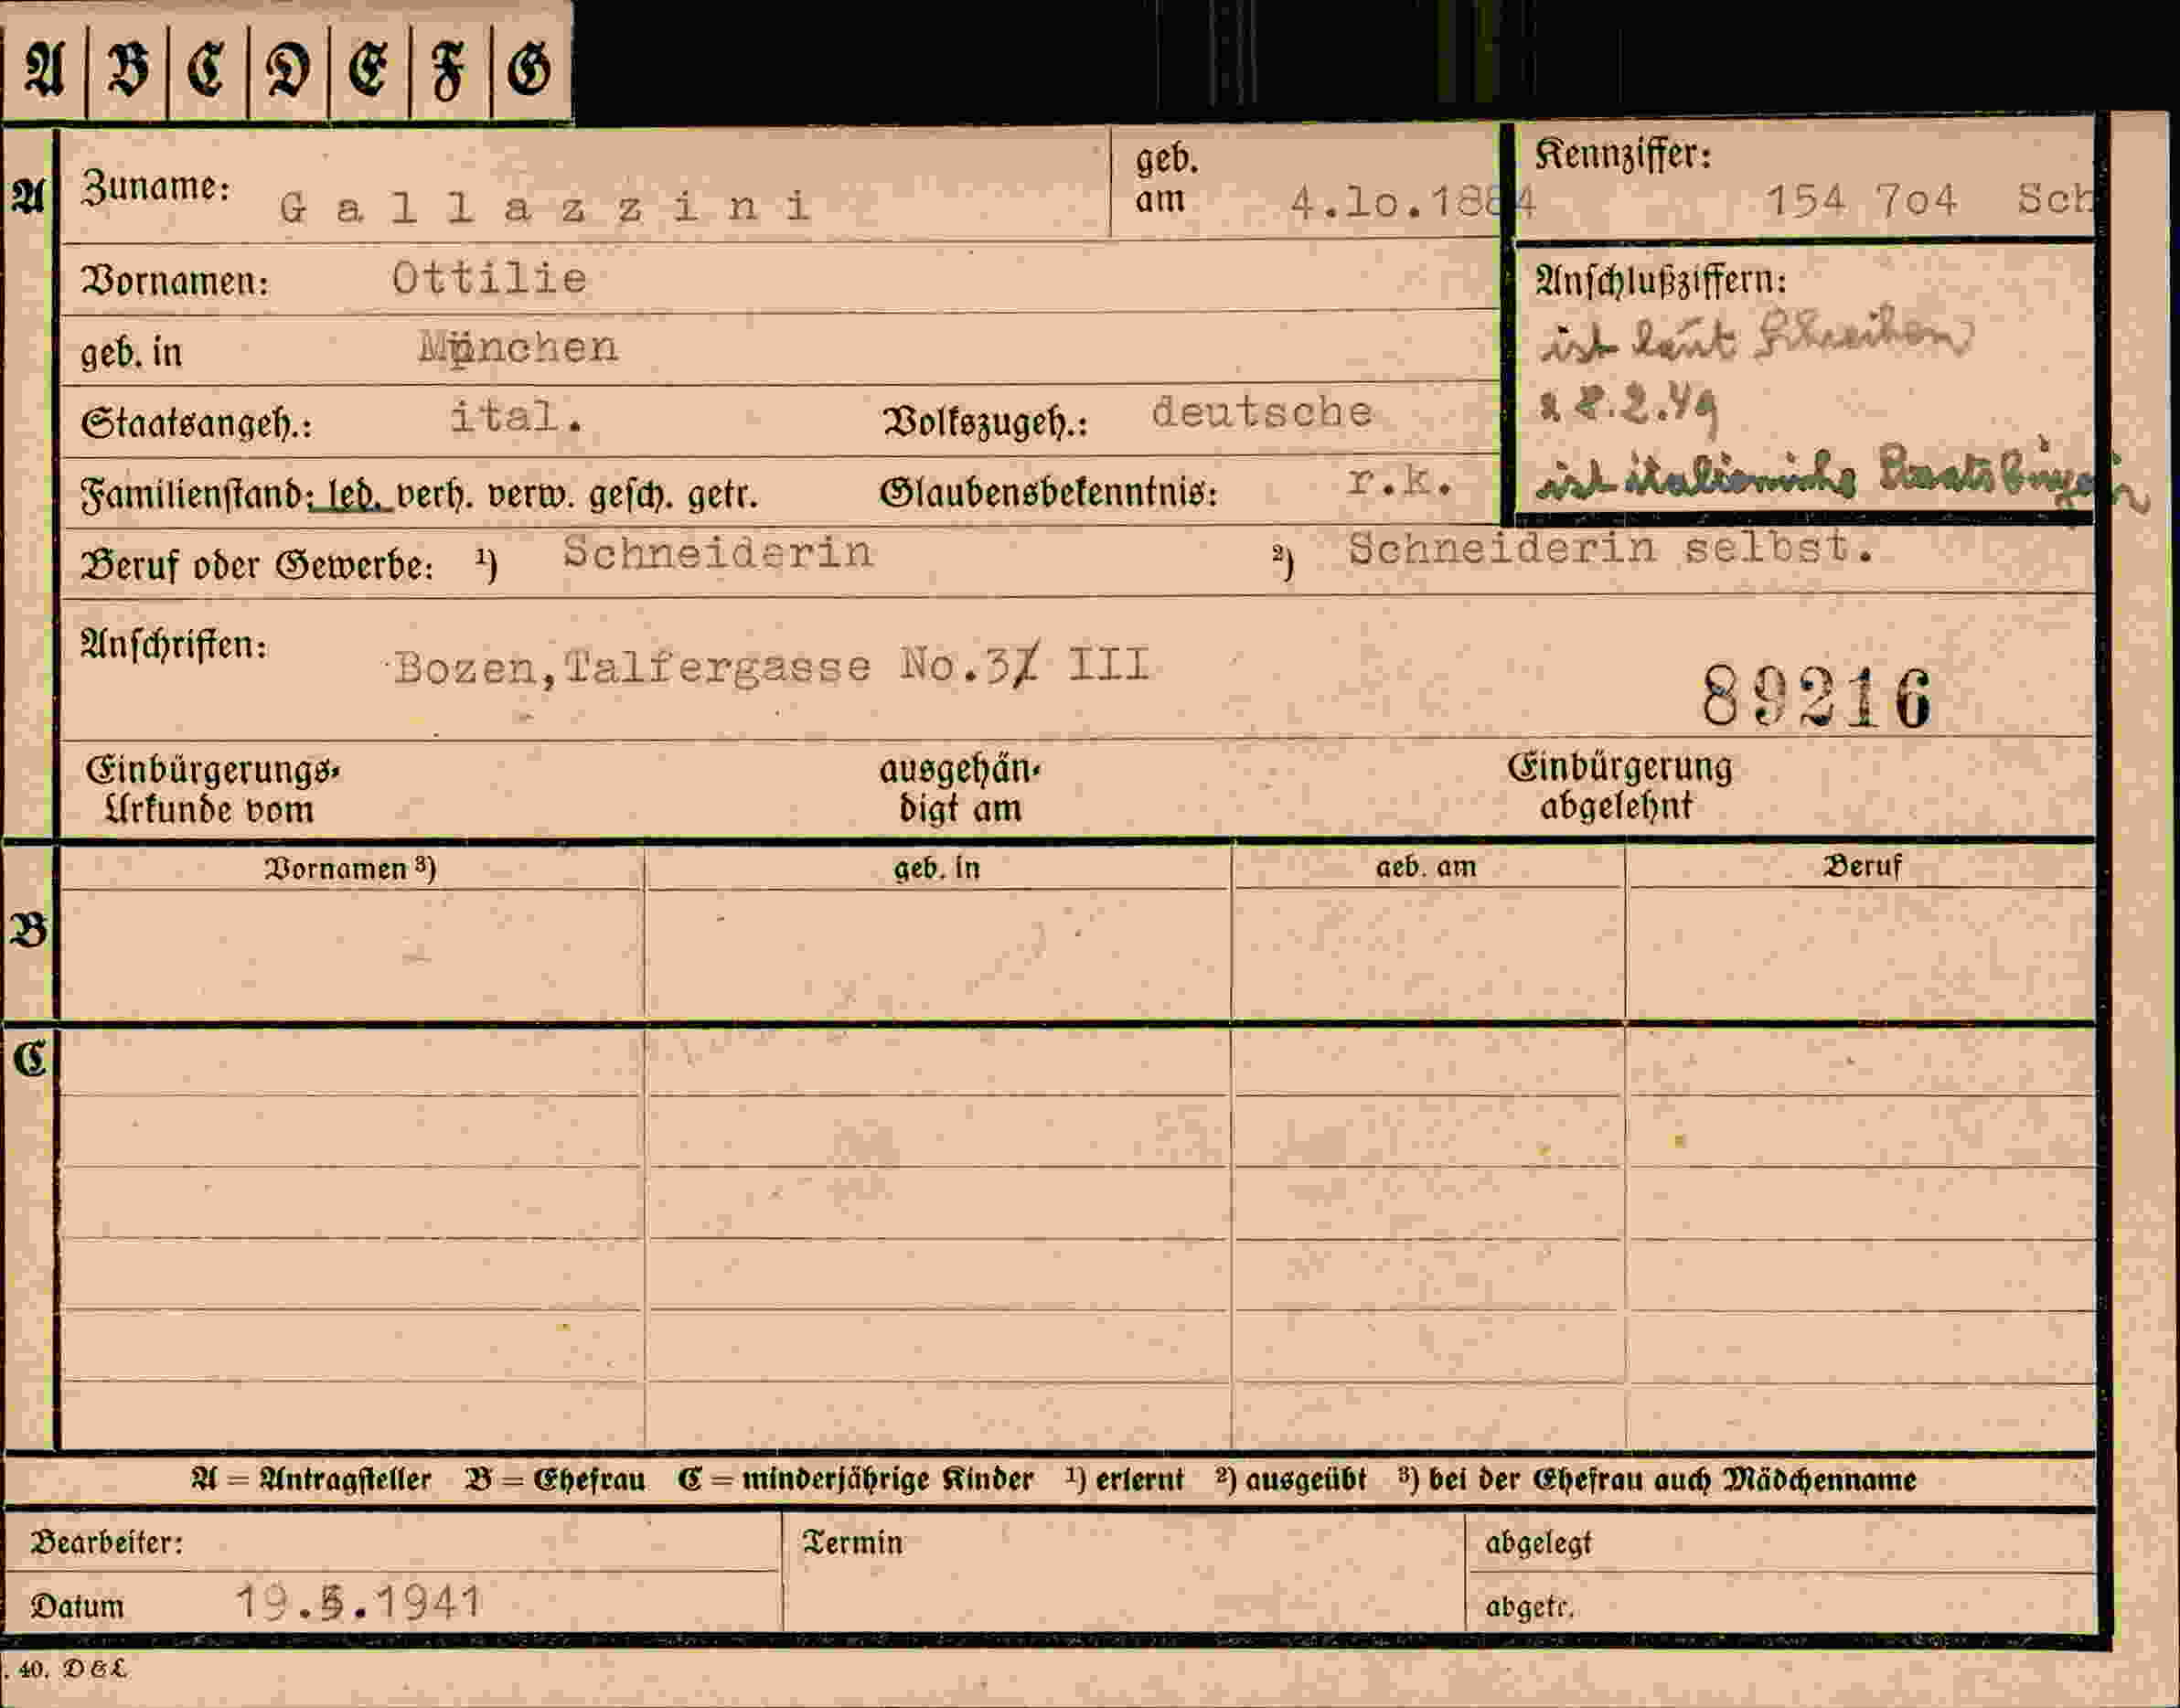 A B C D E F G
A Zuname: Gallazzini geb. am 4.10.1884 Kennziffer: 154 704 Sch
Vornamen: Ottilie Anschlußziffern:
ist laut Schreiben
geb. in München
2.49
Staatsangeh.: ital. Volkszugeh.: deutsche
ist italienische Staatsbürgerin
Familienstand: led. verh. verw. gesch. getr. Glaubensbekenntnis: r.k.
Beruf oder Gewerbe: ¹) Schneiderin ²) Schneiderin selbst.
Anschriften: Bozen, Talfergasse No.3/ III
89216
Einbürgerungs- ausgehän- Einbürgerung
Urkunde vom digt am abgelehnt
B Vornamen ³) geb. in geb. am Beruf
C
A = Antragsteller B = Ehefrau C = minderjährige Kinder ¹) erlernt ²) ausgeübt ³) bei der Ehefrau auch Mädchenname
Bearbeiter: Termin abgelegt
Datum 19.5.1941 abgetr.
. 40. D&L